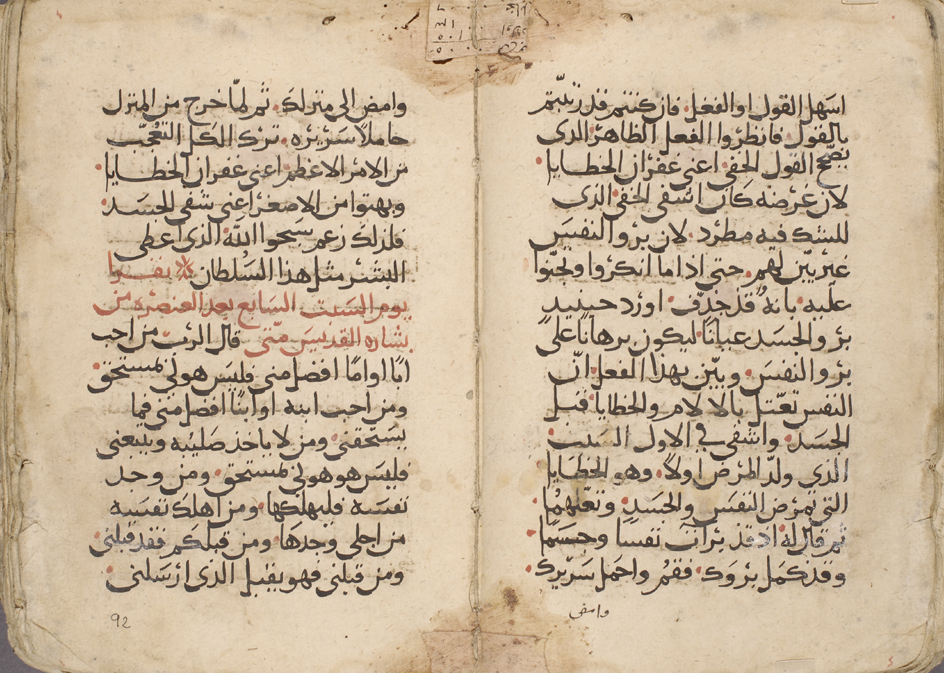 اسهل القول او الفعل فان كنتم قد ربتم
بالقول فانظروا الفعل الظاهر الذى
يصحح القول الخفى اعنى غفران الخطايا
لان غرضه كان اشفى الخفى الذى
للشك فيه مطرد لان برو النفيس
غير بيّن لهم حتى اذا ما انكروا ولجّوا
عليه بانه قد جدّف اورد حينيد
برو الجسد عيانا ليكون برهانا على
برو النفس وبيّن بهذا الفعل انّ
النفس تعتل بالالام والخطايا قبل
الجسد واشفى فى الاول السبب
الذي ولّد المرض اولا وهو الخطايا
التى تمرض النفس والجسد وتعلهما
ثم قال له اذ قد برات نفسا وجسما
وقد كمل بروك فقم واحمل سريرك
وامض
وامض الى منزلك ثم لمّا خرج من المنزل
حاملا سريره ترك الكل التعجب
من الامر الاعظم اعنى غفران الخطايا
وبهتوا من الاصغر اعنى شفى الجسد
فلذلك زعم سبحوا الله الذى اعطى
البشر مثل هذا السلطان يقرا
يوم السبت السابع بعد العنصره من
بشاره القديس متى قال الرب من احب
ابًا او امًا افضل منى فليس هو لي بمستحق
ومن احب ابنه او ابنتا افضل منى فما
يستحقنى ومن لا ياخذ صليبه ويتبعنى
فليس هو هو لي بمستحق ومن وجد
نفسه فليهلكها ومن اهلك نفسه
من اجلى وجدها ومن قبلكم فقد قبلنى
ومن قبلنى فهو يقبل الذى ارسلنى
92